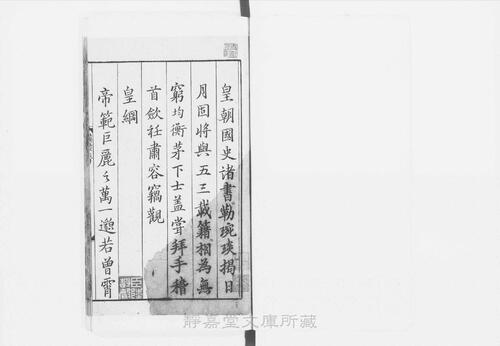 皇朝國史諸書勒琬琰揭日
月固將與五三載籍相為無
窮均衡茅下士蓋嘗拜手稽
首斂衽肅容竊觀
皇綱
帝範巨麗之萬一邈若曾霄
靜嘉堂文庫所藏